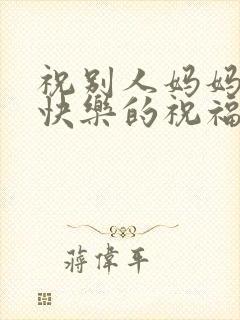 祝别人妈妈
快樂的祝福
蔣偉平